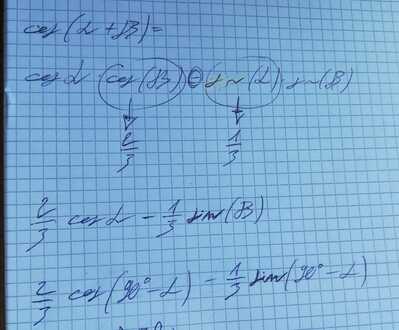 cos(α+β)=
cosα · cos(β) ⊖ sin(α) · sin(β)
2/3 1/3
2/3 cosα - 1/3 sin(β)
2/3 cos(90°-α) - 1/3 sin(90°-α)